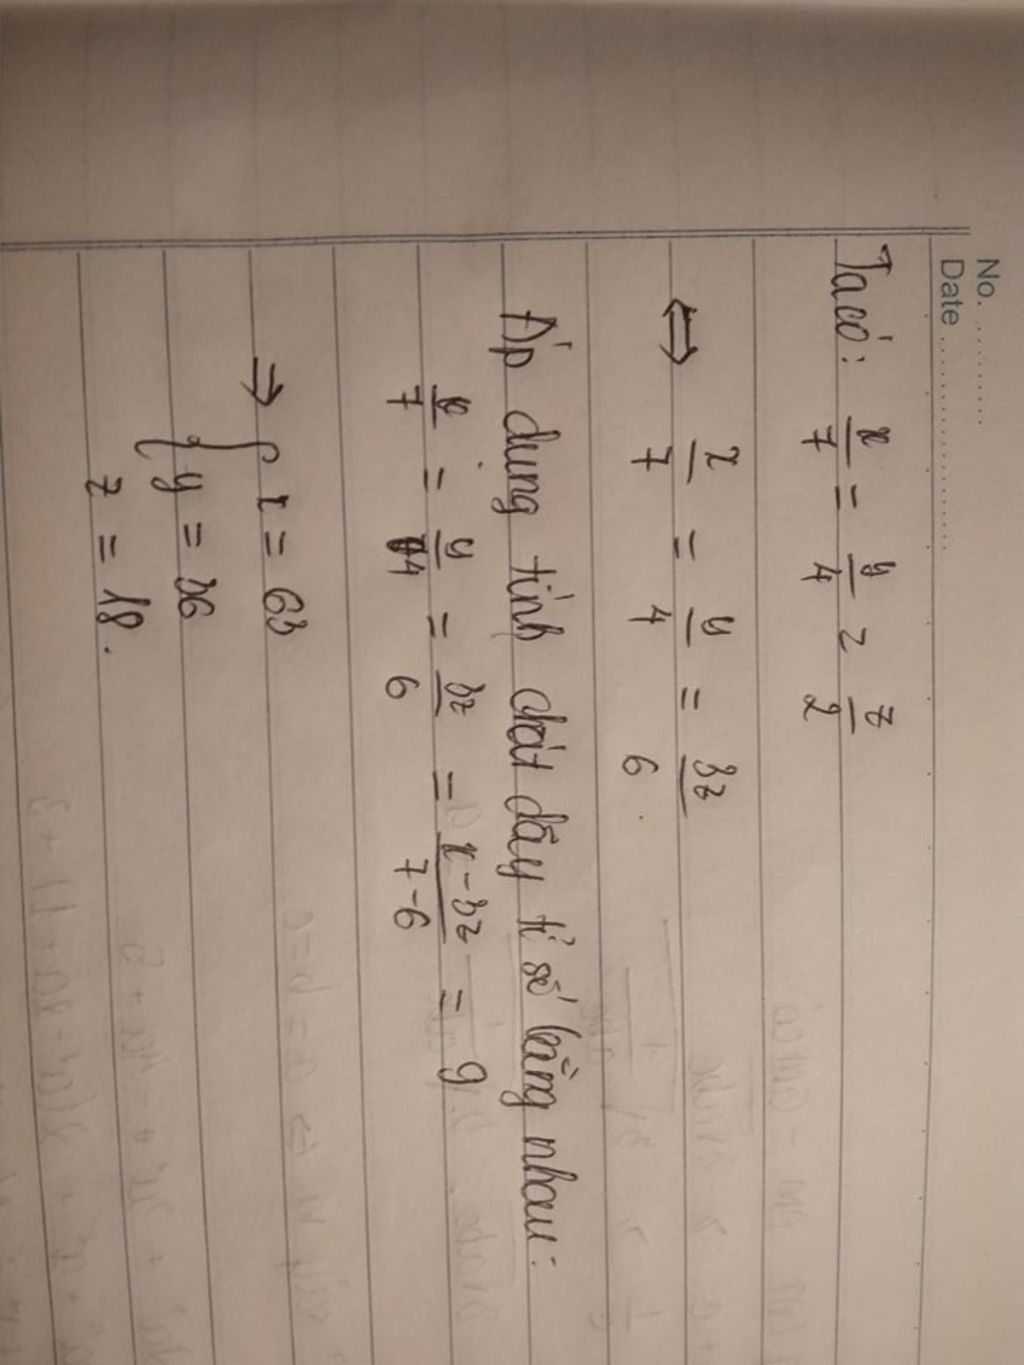 No. ............
Date ........................
Ta có: x/7 = y/4 = z/2
⇔ x/7 = y/4 = 3z/6.
Áp dụng tính chất dãy tỉ số bằng nhau:
x/7 = y/4 = 3z/6 = x-3z/7-6 = 9
⇒ { x = 63
y = 36
z = 18.